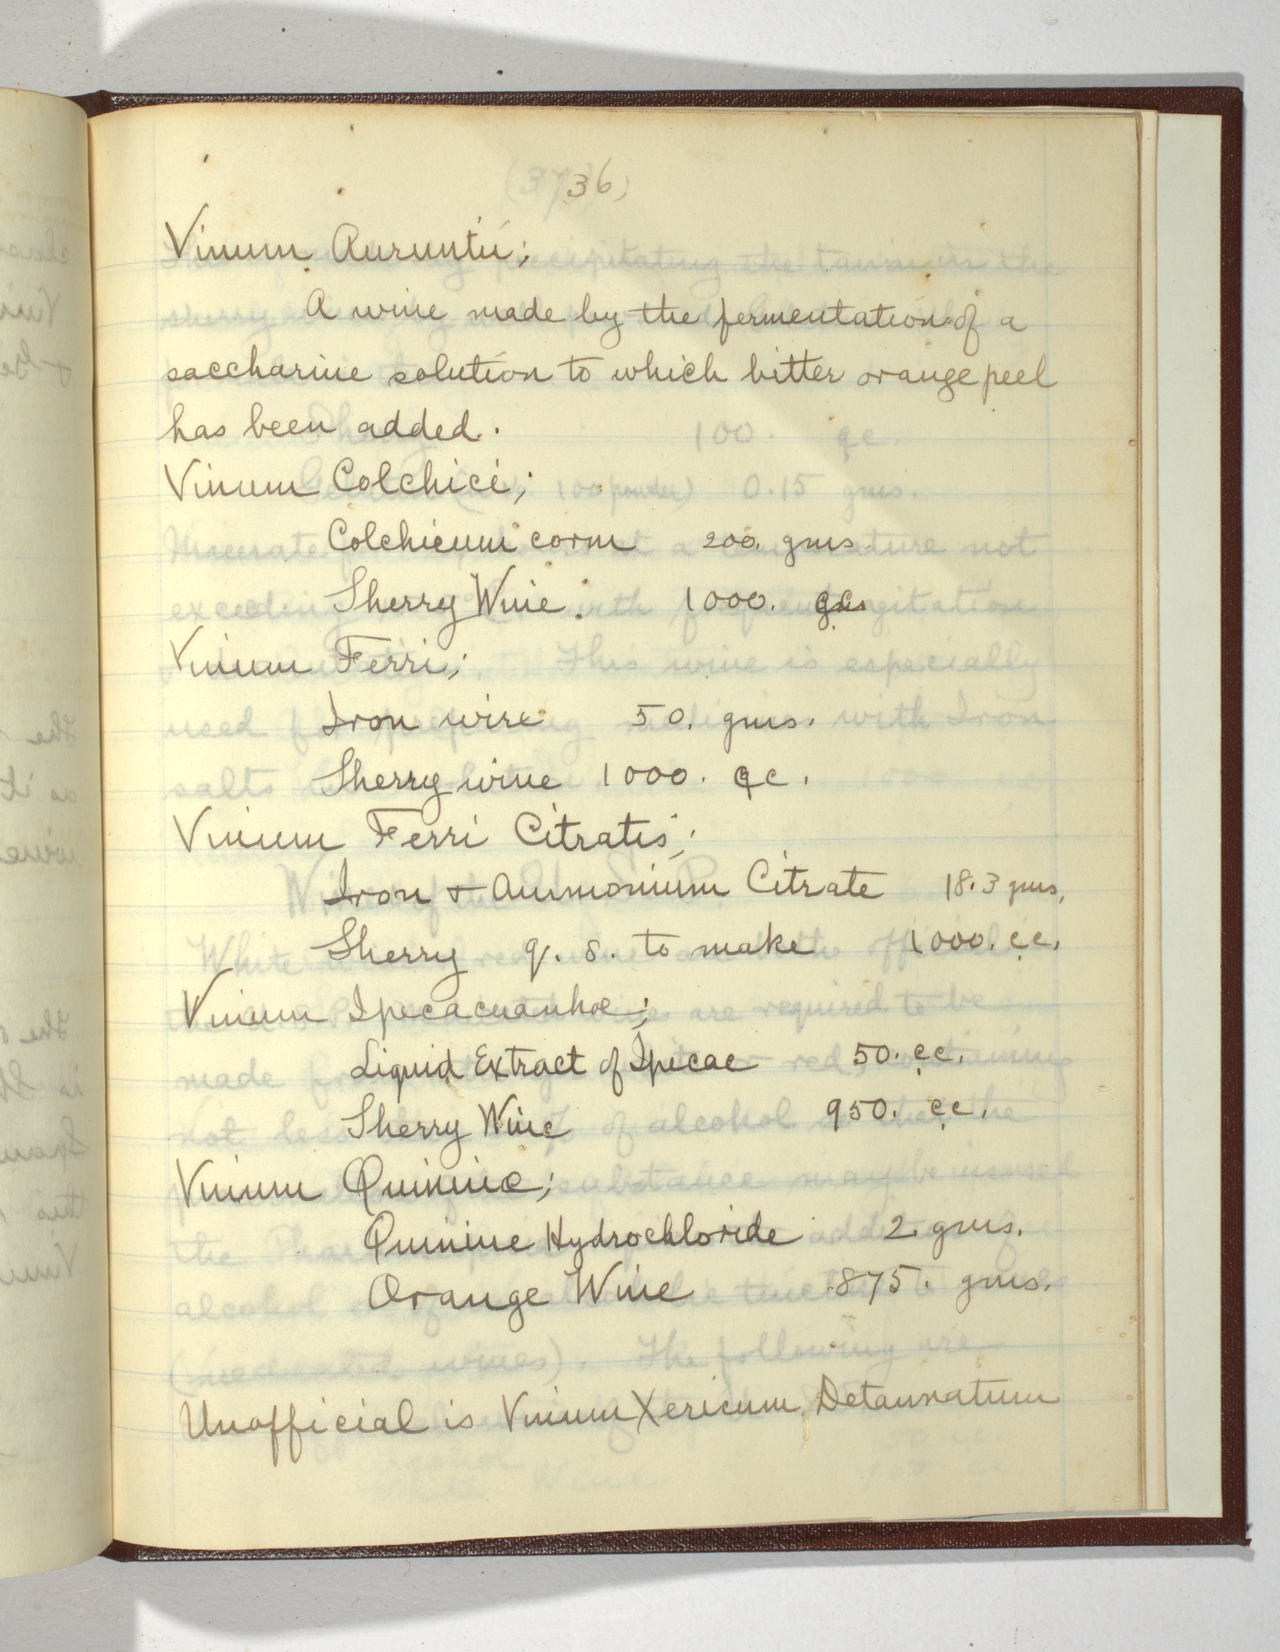 36
Vinum Aurantii;
A wine made by the fermentation of a
saccharine solution to which bitter orange peel
has been added.
Vinum Colchici;
Colchicum corm 200. gms.
Sherry Wine. 1000.
Vinum Ferri;
Iron wire 50. gms.
Sherry wine 1000. cc.
Vinum Ferri Citratis;
Iron & Ammonium Citrate 18.3 gms.
Sherry q. s. to make 1000. cc.
Vinum Ipecacuanhae;
Liquid Extract of Ipecac 50. cc.
Sherry Wine 950. cc.
Vinum Quininae;
Quinine Hydrochloride 2. gms.
Orange Wine 875. gms.
Unofficial is Vinum Xericum Detannatum